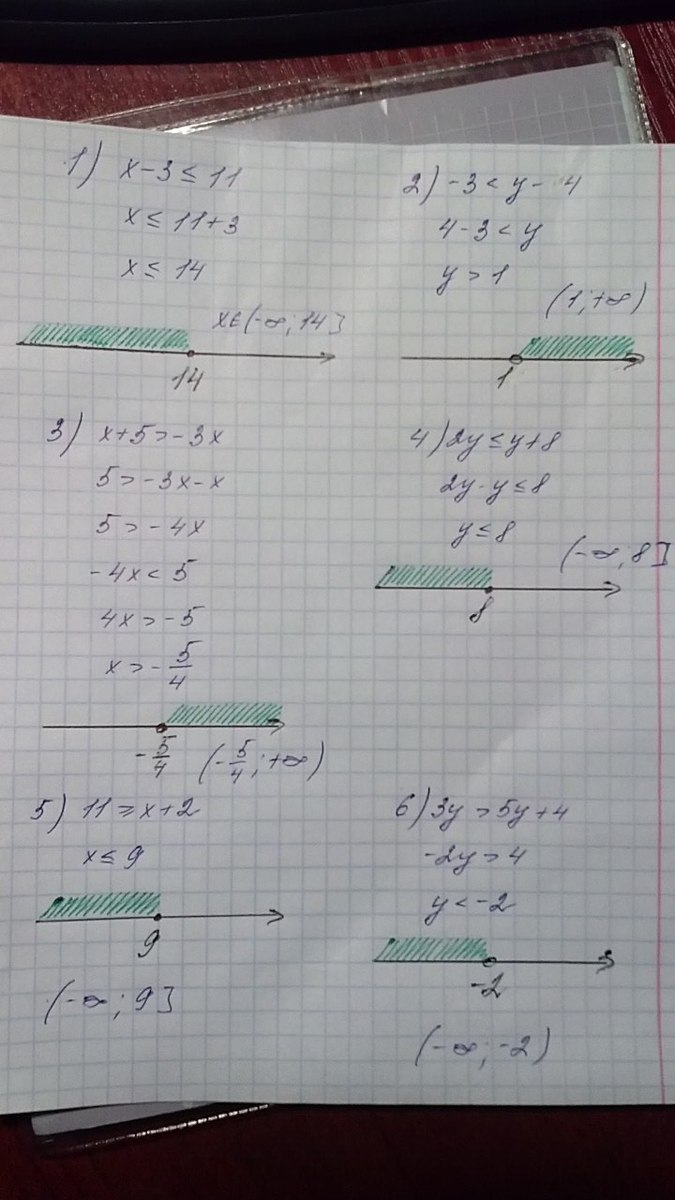 1) x-3 ≤ 11
x ≤ 11+3
x ≤ 14
x∈(-∞; 14]
14
2) -3 < y - 4
4-3 < y
y > 1
(1; +∞)
1
3) x+5 > -3x
5 > -3x-x
5 > -4x
-4x < 5
4x > -5
x > -5/4
-5/4 (-5/4; +∞)
4) 2y ≤ y+8
2y-y ≤ 8
y ≤ 8
(-∞, 8]
8
5) 11 ≥ x+2
x ≤ 9
9
(-∞; 9]
6) 3y > 5y+4
-2y > 4
y < -2
-2
(-∞; -2)